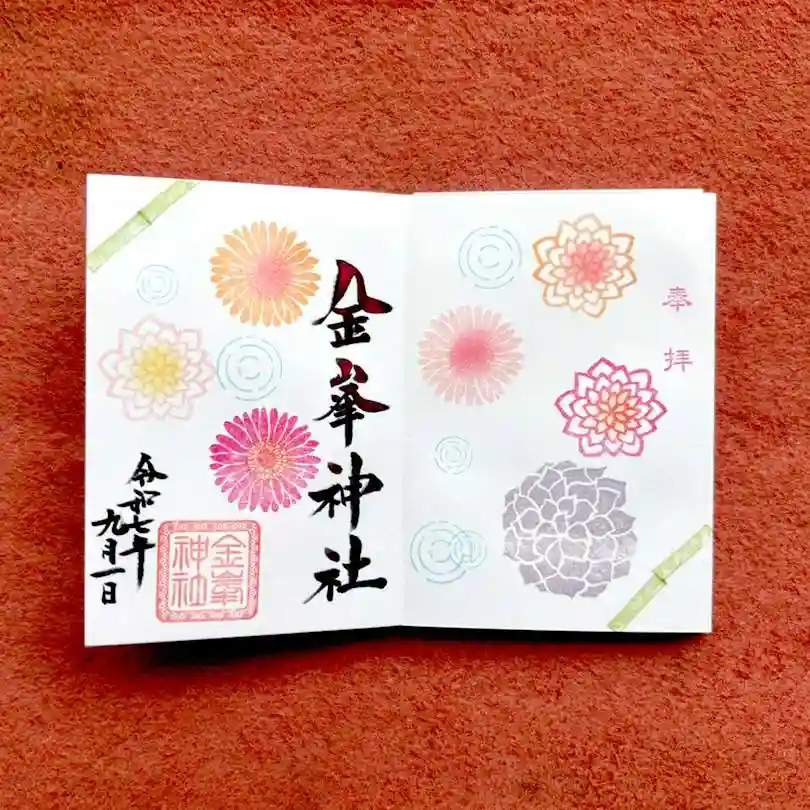 奉拝
金峯神社
金峯
神社
令和七年
九月一日